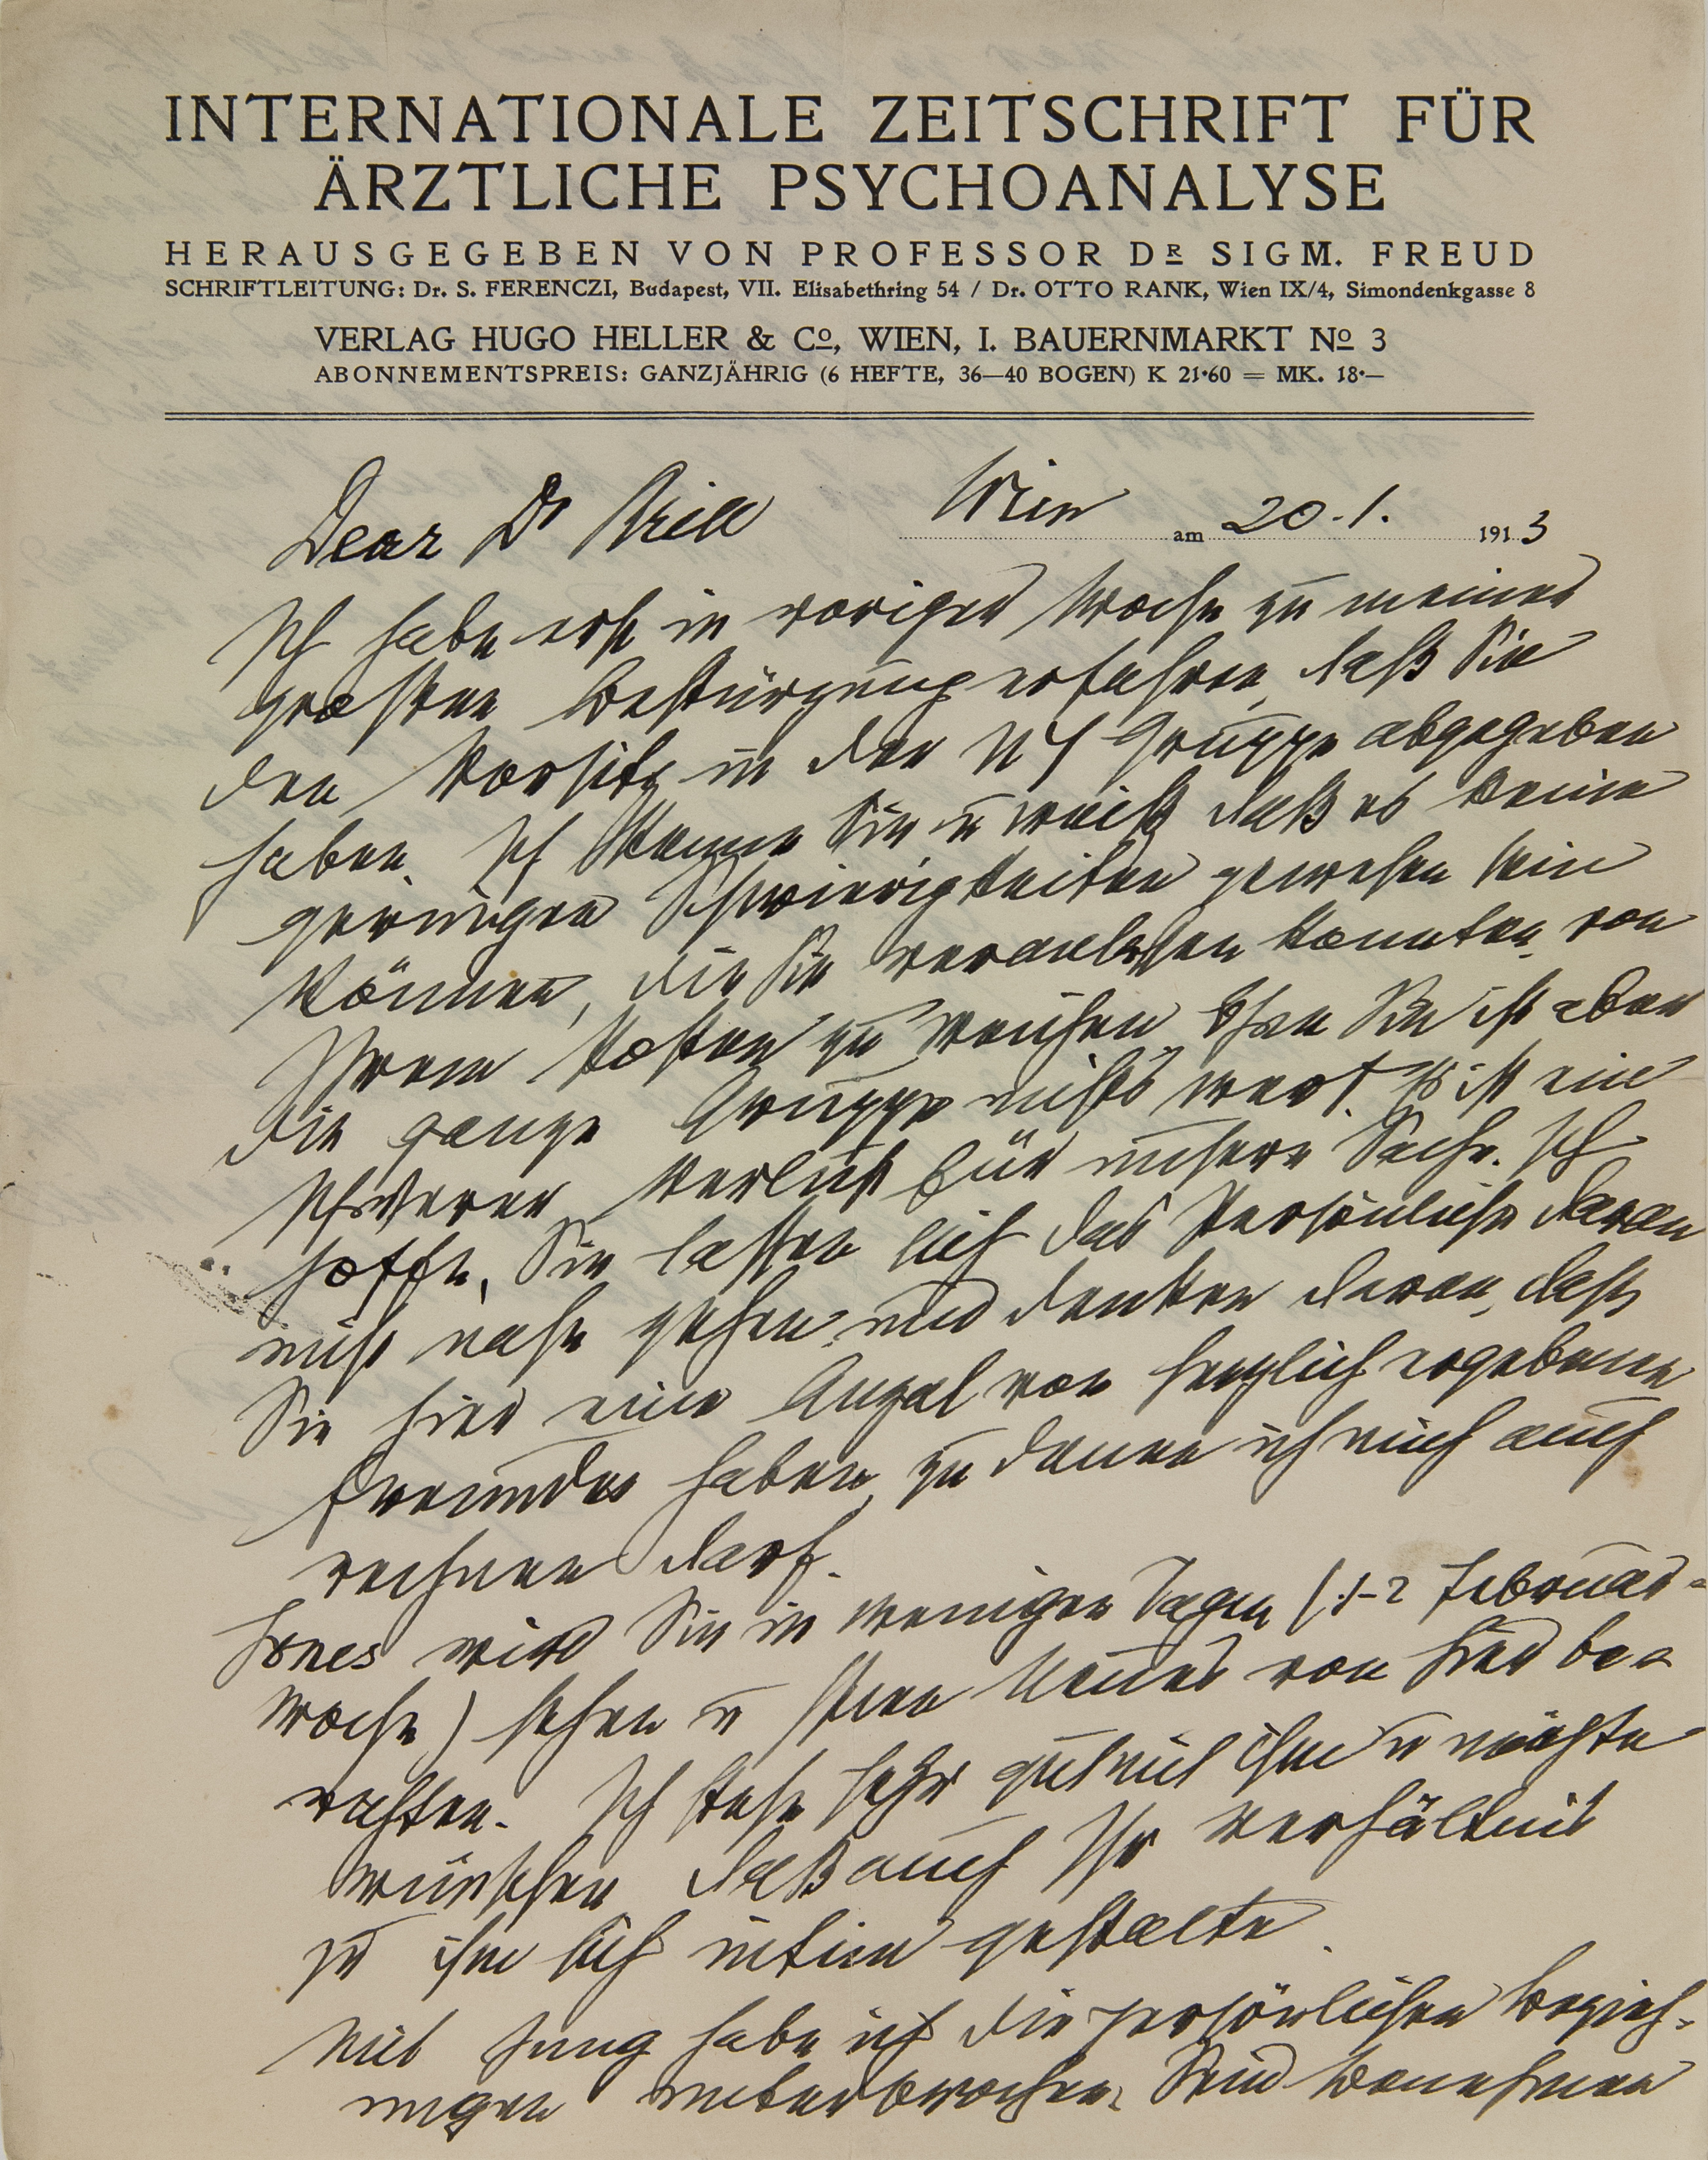 INTERNATIONALE ZEITSCHRIFT FÜR
ÄRZTLICHE PSYCHOANALYSE
HERAUSGEGEBEN VON PROFESSOR DR SIGM. FREUD
SCHRIFTLEITUNG: Dr. S. FERENCZI, Budapest, VII. Elisabethring 54 / Dr. OTTO RANK, Wien IX/4, Simondenkgasse 8
VERLAG HUGO HELLER & Co, WIEN, I. BAUERNMARKT No 3
ABONNEMENTSPREIS: GANZJÄHRIG (6 HEFTE, 36—40 BOGEN) K 21·60 = MK. 18·—
Wien am 20.1. 1913
Dear Dr Brill
Ich habe erst in voriger Woche zu meiner
großten Bestürzung erfahren, daß Sie
den Vorsitz in der NY Gruppe abgegeben
haben. Ich kenne Sie u weiß daß es keine
geringen Schwierigkeiten gewesen sein
können, die Sie veranlassen konnten, von
Ihrem Posten zu weichen. Ohne Sie ist aber
die ganze Gruppe nichts wert. Es ist ein
schwerer Verlust für unsere Sache. Ich
hoffe, Sie lassen sich das Persönliche daran
nicht nahe gehen und denken daran, dass
Sie hier eine Anzal von herzlich ergebenen
Freunden haben, zu denen ich mich auch
rechnen darf.
Jones wird Sie in wenigen Tagen (1-2 Februar-
woche) sehen u Ihnen Neues von hier be-
richten. Ich stehe sehr gut mit ihm u möchte
wünschen daß auch Ihr Verhältnis
zu ihm sich intim gestalte.
Mit Jung habe ich die persönlichen Bezieh-
ungen unterbrochen. Sein Benehmen